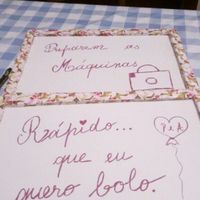 Preparem as
Máquinas
Rápido...
que eu
quero bolo.
V&A